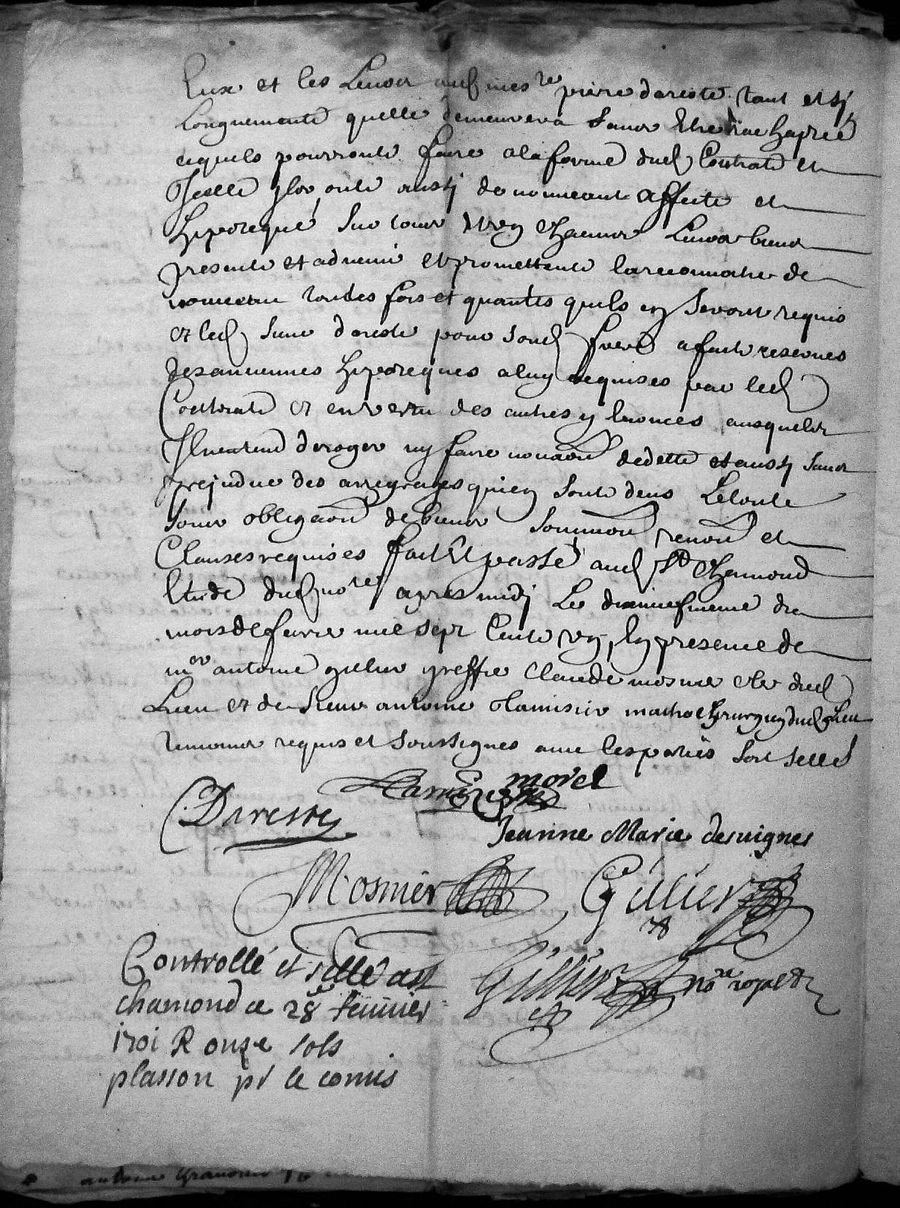 Eux et les Leurs aud mes re pierre dareste tant et sy
Longuement quelle demeurera sans Etre
cequils pourront faire alaforme dud Contrat et
Icelle Ilz ont aussy de nouveau affecté et
hipotequé sur tous et un chacuns Leurs biens
presents et advenir et promettent lareconnoitre de
nouveau toutes fois et quantes quils en seront requis
et led sieur dareste pour sond frere a fait reserves
desanciennes hipoteques aluy acquises par led
Contrat et envertu des autres y Enoncés ausquelles
Il nentend deroger ny faire novaon dedette et aussy sans
prejudice des arrerages quien sont deus Le tout
sous obligaon de biens soumissions renons et
Clauses requises fait Et passé aud St Chamond
Etude dud nore apres midy Le dixneufvieme du
mois de feuvrier mil sept Cents un, En presence de
mre antoine gillier greffier claude mosnier clerc dud
Lieu et de sieur antoine mathe chirurgien dud Lieu
temoins requis et soussignés avec les parties
morel
Dareste
Jeanne Marie desvignes
Mosnier Gillier
Gillier nore royal
Controllé et sellé a st
chamond ce 28e feuvrier
1701 R onze sols
plasson pr le comis
antoine